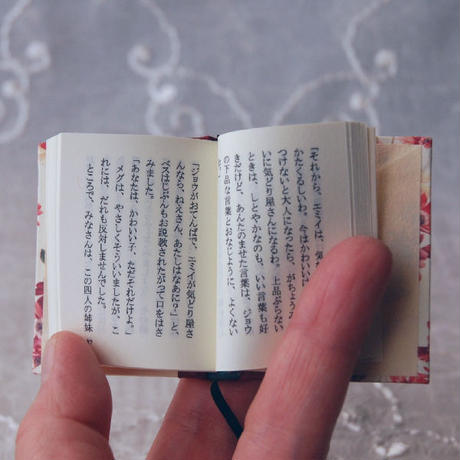 「それから、エミイは、気
かたくるしいわ。今はかわいい
つけないと大人になったら、がちょう
いに気どり屋さんになるわ。上品ぶらない
ときは、しとやかなのも、いい言葉も好
きだけど、あんたのませた言葉は、ジョウ
の下品な言葉とおなじように、よくない
「ジョウがおてんばで、エミイが気どり屋さ
んなら、ねえさん、あたしはなあに？」と、
ベスはじぶんもお説教されたがって口をはさ
みました。
「あなたは、かわいい子、ただそれだけよ。」
メグは、やさしくそういいましたが、こ
れには、だれも反対しませんでした。
ところで、みなさんは、この四人の姉妹